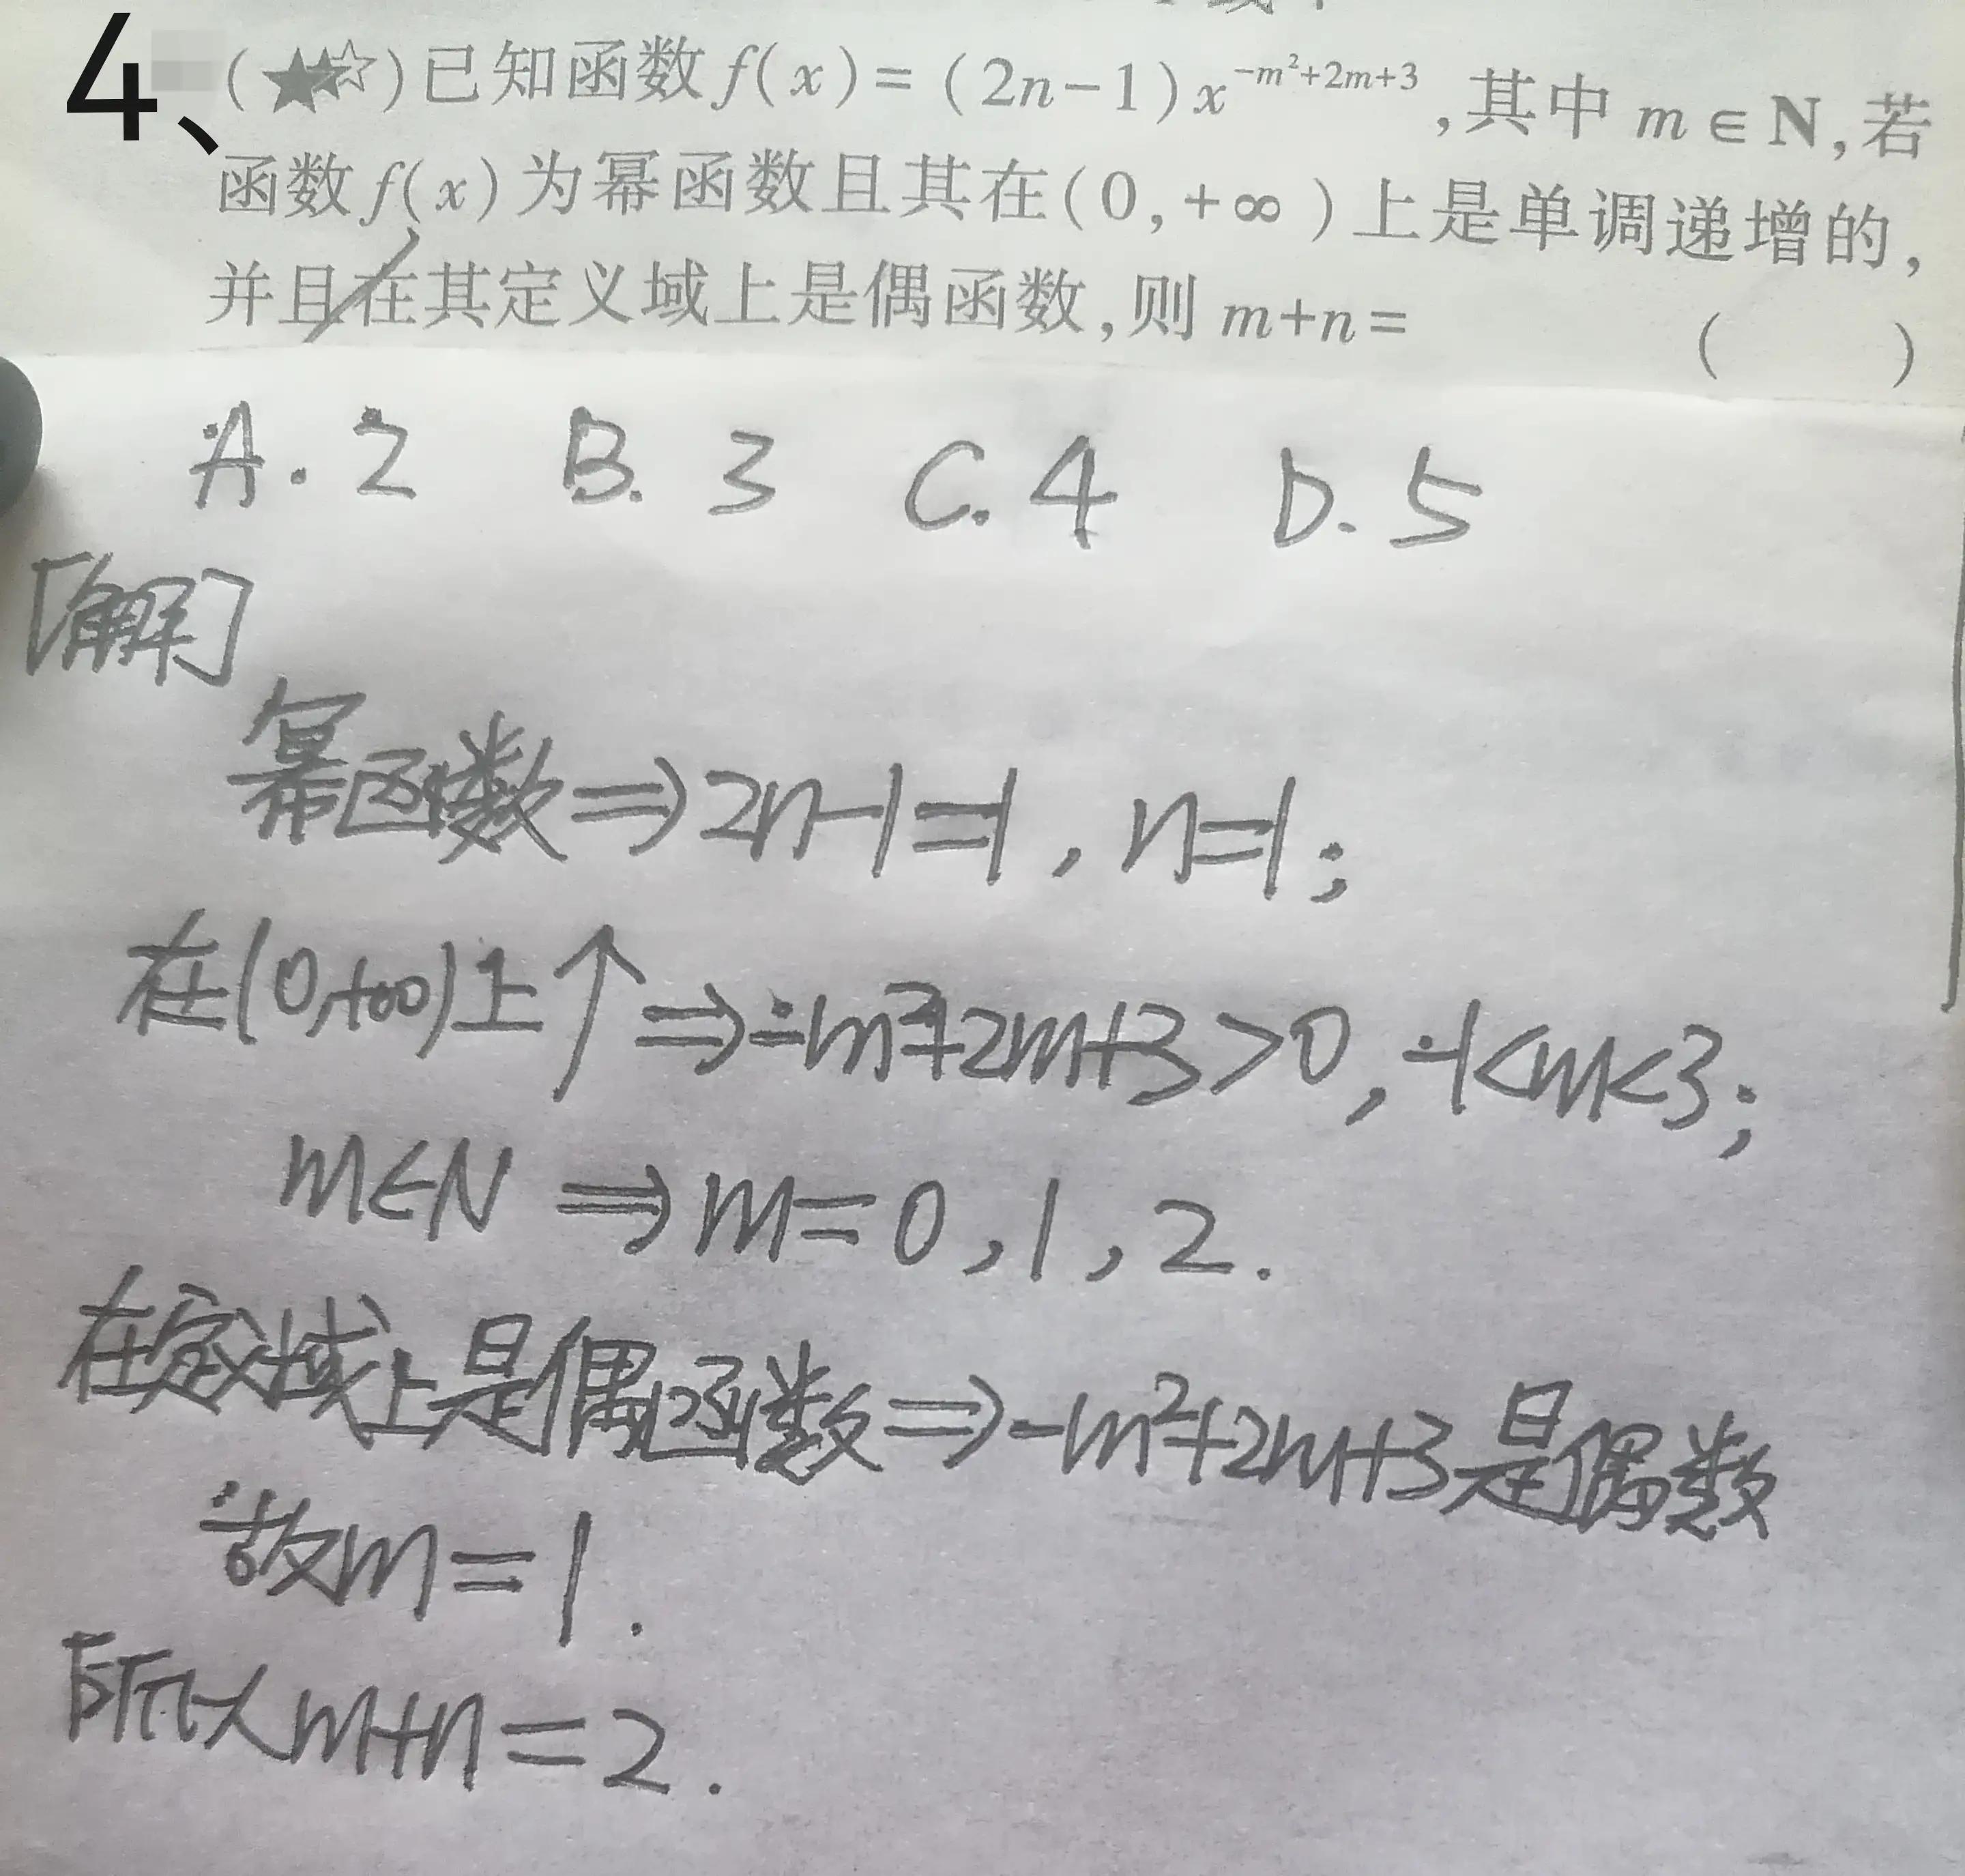 4、(★★☆)已知函数f(x)=(2n-1)x^{-m²+2m+3},其中 m∈N,若
函数f(x)为幂函数且其在(0,+∞)上是单调递增的,
并且在其定义域上是偶函数,则 m+n= ( )
A.2 B.3 C.4 D.5
[解]
幂函数⇒2n-1=1,n=1;
在(0,+∞)上↑⇒-m²+2m+3>0,-1<m<3;
m∈N ⇒m=0,1,2.
在定义域上是偶函数⇒-m²+2m+3是偶数
故m=1.
所以m+n=2.